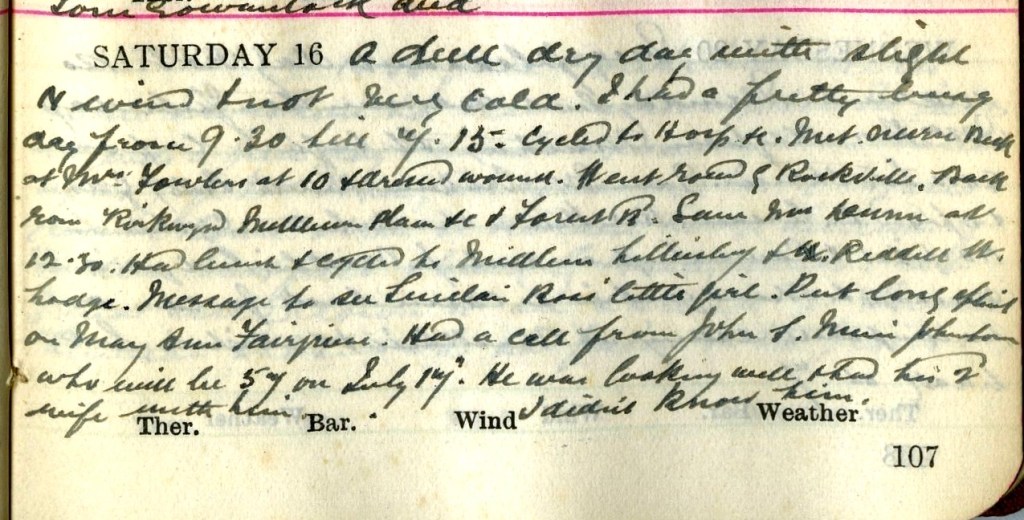 Tom Rowantock died
SATURDAY 16 A dull dry day with slight
N wind & not very cold. I had a pretty busy
day from 9.30 till 7.15. Cycled to Hosp &c. Met nurse Beck
at Mrs. Fowlers at 10 & dressed wound. Went round by Rockville. Back
from Kirkwynd &c & Forest R. Saw Mrs Dunn at
12.30. Had lunch & cycled to & Riddell W.
hodge. Message to see Sinclair Ross' little girl. Put long splint
on May Ann Fairgrieve. Had a call from John S. Muir Johnston
who will be 57 on July 17. He was looking well & had his 2
wife with him I didn't know him.
Ther. Bar. Wind Weather
107